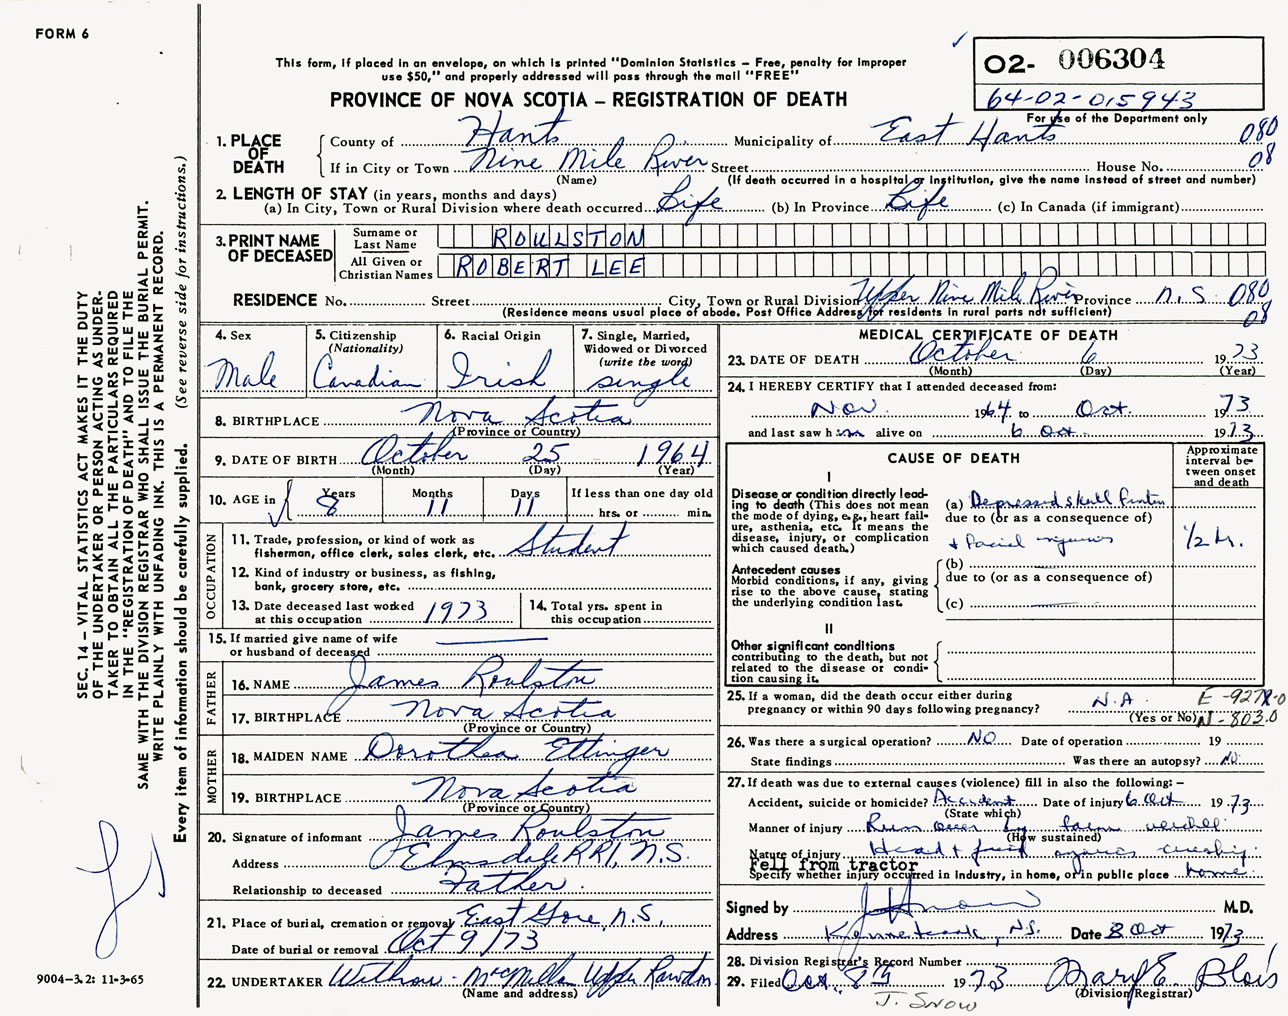 FORM 6
This form, if placed in an envelope, on which is printed "Dominion Statistics – Free, penalty for improper
use $50," and properly addressed will pass through the mail "FREE"
PROVINCE OF NOVA SCOTIA – REGISTRATION OF DEATH
02- 006304
64-02-015943
For use of the Department only
1. PLACE OF DEATH
County of Hants Municipality of East Hants 080
If in City or Town Nine Mile River Street House No. 08
(Name) (If death occurred in a hospital or institution, give the name instead of street and number)
2. LENGTH OF STAY (in years, months and days)
(a) In City, Town or Rural Division where death occurred Life (b) In Province Life (c) In Canada (if immigrant)
3. PRINT NAME OF DECEASED
Surname or Last Name ROULSTON
All Given or Christian Names ROBERT LEE
RESIDENCE No. Street City, Town or Rural Division Upper Nine Mile River Province N.S 080
(Residence means usual place of abode. Post Office Address for residents in rural parts not sufficient) 08
4. Sex
Male
5. Citizenship
(Nationality)
Canadian
6. Racial Origin
Irish
7. Single, Married,
Widowed or Divorced
(write the word)
single
8. BIRTHPLACE Nova Scotia
(Province or Country)
9. DATE OF BIRTH October 25 1964
(Month) (Day) (Year)
10. AGE in Years Months Days If less than one day old
8 11 11 hrs. or min.
OCCUPATION
11. Trade, profession, or kind of work as
fisherman, office clerk, sales clerk, etc. Student
12. Kind of industry or business, as fishing,
bank, grocery store, etc.
13. Date deceased last worked
at this occupation 1973
14. Total yrs. spent in
this occupation
15. If married give name of wife
or husband of deceased
FATHER
16. NAME James Roulston
17. BIRTHPLACE Nova Scotia
(Province or Country)
MOTHER
18. MAIDEN NAME Dorothea Ettinger
19. BIRTHPLACE Nova Scotia
(Province or Country)
20. Signature of informant James Roulston
Address Elmsdale RR1, N.S.
Relationship to deceased Father
21. Place of burial, cremation or removal East Gore, N.S.
Date of burial or removal Oct 9/73
22. UNDERTAKER Withrow - McMillan Upper Rawdon
(Name and address)
MEDICAL CERTIFICATE OF DEATH
23. DATE OF DEATH October 6 1973
(Month) (Day) (Year)
24. I HEREBY CERTIFY that I attended deceased from:
Nov 1964 to Oct. 1973
and last saw him alive on 6 Oct 1973
CAUSE OF DEATH
Approximate
interval be-
tween onset
and death
I
Disease or condition directly lead-
ing to death (This does not mean
the mode of dying, e.g., heart fail-
ure, asthenia, etc. It means the
disease, injury, or complication
which caused death.)
(a) Depressed skull
due to (or as a consequence of)
+ facial injuries
1/2 hr.
Antecedent causes
Morbid conditions, if any, giving
rise to the above cause, stating
the underlying condition last.
(b)
due to (or as a consequence of)
(c)
II
Other significant conditions
contributing to the death, but not
related to the disease or condi-
tion causing it.
25. If a woman, did the death occur either during
pregnancy or within 90 days following pregnancy? N.A
(Yes or No)
N-803.0
26. Was there a surgical operation? NO Date of operation 19
State findings Was there an autopsy? No
27. If death was due to external causes (violence) fill in also the following: –
Accident, suicide or homicide? Accident Date of injury 6 Oct 1973
(State which)
Manner of injury Run over by farm vehicle
(How sustained)
Nature of injury Head + facial injuries crushing
Fell from tractor
Specify whether injury occurred in industry, in home, or in public place home
Signed by M.D.
Address Kennetcook, N.S. Date 8 Oct 1973
28. Division Registrar's Record Number
29. Filed Oct. 8th 1973 Mary E. Blois
(Division Registrar)
J. SNOW
SEC. 14 – VITAL STATISTICS ACT MAKES IT THE DUTY
OF THE UNDERTAKER OR PERSON ACTING AS UNDER-
TAKER TO OBTAIN ALL THE PARTICULARS REQUIRED
IN THE "REGISTRATION OF DEATH" AND TO FILE THE
SAME WITH THE DIVISION REGISTRAR WHO SHALL ISSUE THE BURIAL PERMIT.
WRITE PLAINLY WITH UNFADING INK. THIS IS A PERMANENT RECORD.
Every item of information should be carefully supplied. (See reverse side for instructions.)
9004-3.2: 11-3-65